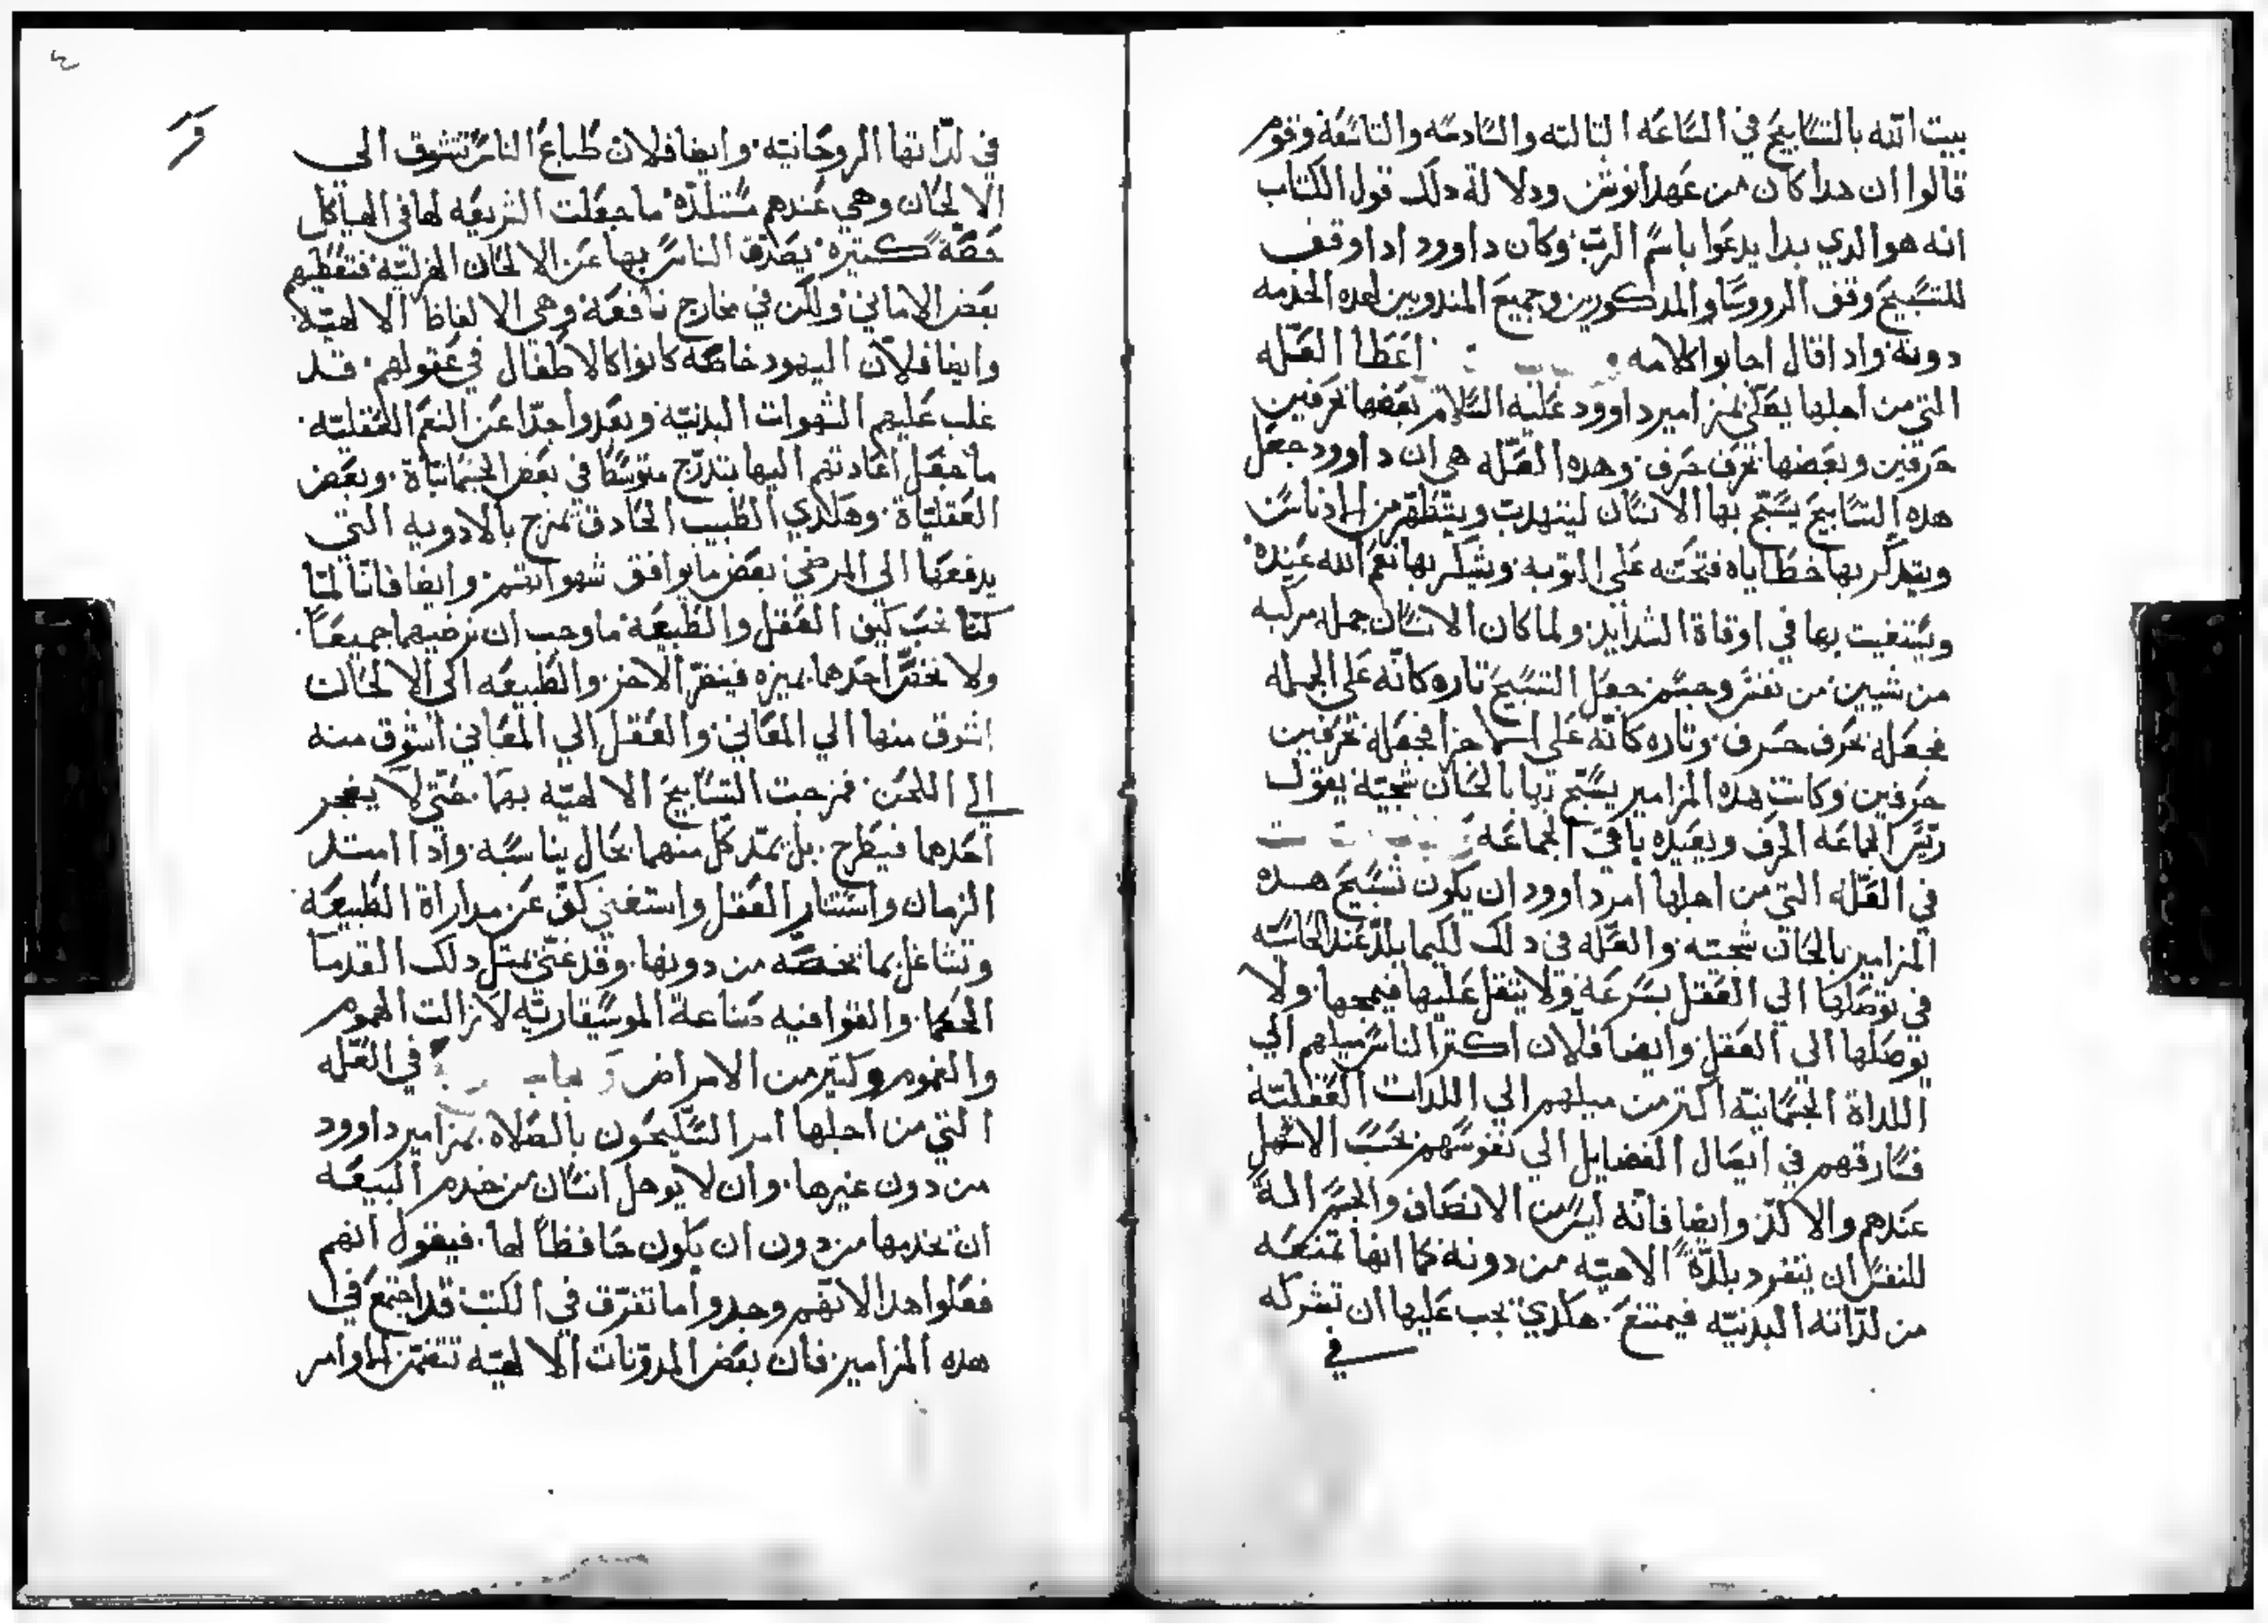 بيت الله بالتسابيح في الساعه التالته والسادسه والتاسعه وقوم
قالوا ان هدا كان من عهد انوش ودلالة دلك قول الكتاب
انه هو الدي بدا يدعوا باسم الرب وكان داوود ادا وقف
للتسبيح وقف الرووسا والمدكورين وجميع المندوبين لهده الخدمه
دونه وادا قال اجابوا كلامه اعطا العله
التي من اجلها يصلى بمزامير داوود عليه السلام بعضها بحرفين
حرفين وبعضها بحرف حرف وهده العله هي ان داوود جعل
هده التسابيح يسبح بها الانسان ليتهدب ويتطهر من الادناس
ويتدكر بها خطاياه فتحته على التوبه ويشكر بها نعم الله عنده
ويستغيت بها في اوقاة الشدايد ولما كان الانسان جمله مركبه
من شيين من نفس وجسم جعل التسبيح تاره كانه على الجمله
فجعله بحرف حرف وتاره كانه على فجعله بحرفين
حرفين وكانت هده المزامير يسبح بها بالحان شجيه يقول
ريس الجماعه الحرف ويعيده باقي الجماعه
في العله التي من اجلها امر داوود ان يكون تسبيح هده
المزامير بالحان شجيه والعله في دلك لكيما يلد عند الحاسه
في توصلها الي العقل بسرعه ولا يتقل عليها فيمجها ولا
يوصلها الي العقل وايضا فلان اكتر الناس ميلهم الي
اللداة الجسمانيه اكتر من ميلهم الي اللدات العقليه
فسارقهم في ايصال الفضايل الي نفوسهم بحسب الاسهل
عندهم والالد وايضا فانه ليس من الانصاف والجسم الة
للنفس ان ينفرد بلدة الاهيه من دونه فكما انها تمنعه
من لداته البدنيه فيمتنع هكدي يجب عليها ان تشركه
في
في لداتها الروحانيه وايضا فلان طباع الناس تتشوق الى
الالحان وهي عندهم مستلده ما جعلت الشريعه لها في الهياكل
حصة كتيره يصدق الناس بها عن الالحان الهزليه فتعطيهم
بعض الاماني ولكن في مخارج نافعه وهي الالفاظ الالهيه
وايضا فلان اليهود خاصه كانوا كالاطفال في عقولهم قد
غلب عليهم الشهوات البدنيه وبعدوا جدا عن النعم العقليه
ما جعل اعادتهم اليها بتدرج متوسطا في بعض الجسمانياة وبعض
العقلياة وهكدي الطبيب الحادق يمزج بالادويه التي
يدفعها الى المرضي بعض ما يوافق شهواتهم وايضا فاننا لما
كنا نحب العقل والطبيعه ما وجب ان نرضيهما جميعا
ولا نخص احدهما بميزه فينفر الاخر والطبيعه الى الالحان
اشوق منها الي المعاني والعقل الي المعاني اشوق منه
الي اللحن فمزجت التسابيح الالهيه بهما حتي لا يضجر
احدهما فيطرح بل يمتد كل منهما بحال يناسبه وادا امتد
الزمان واستنار العقل واستغني عن مداراة الطبيعه
وتشاغل بما يخصه من دونها وقد عنى بمتل دلك القدما
الحكما والفوا فيه صناعة الموسيقاريه لازالت الهموم
والغموم وكتير من الامراض في العله
التي من اجلها امر السليحون بالصلاه بمزامير داوود
من دون غيرها وان لا يوهل انسان من خدم البيعه
ان يخدمها من دون ان يكون حافظا لها فيقول انهم
فعلوا هدا لانهم وجدوا ما تفرق في الكتب قد اجتمع في
هده المزامير فان بعض المدونات الالهيه تتضمن الاوامر